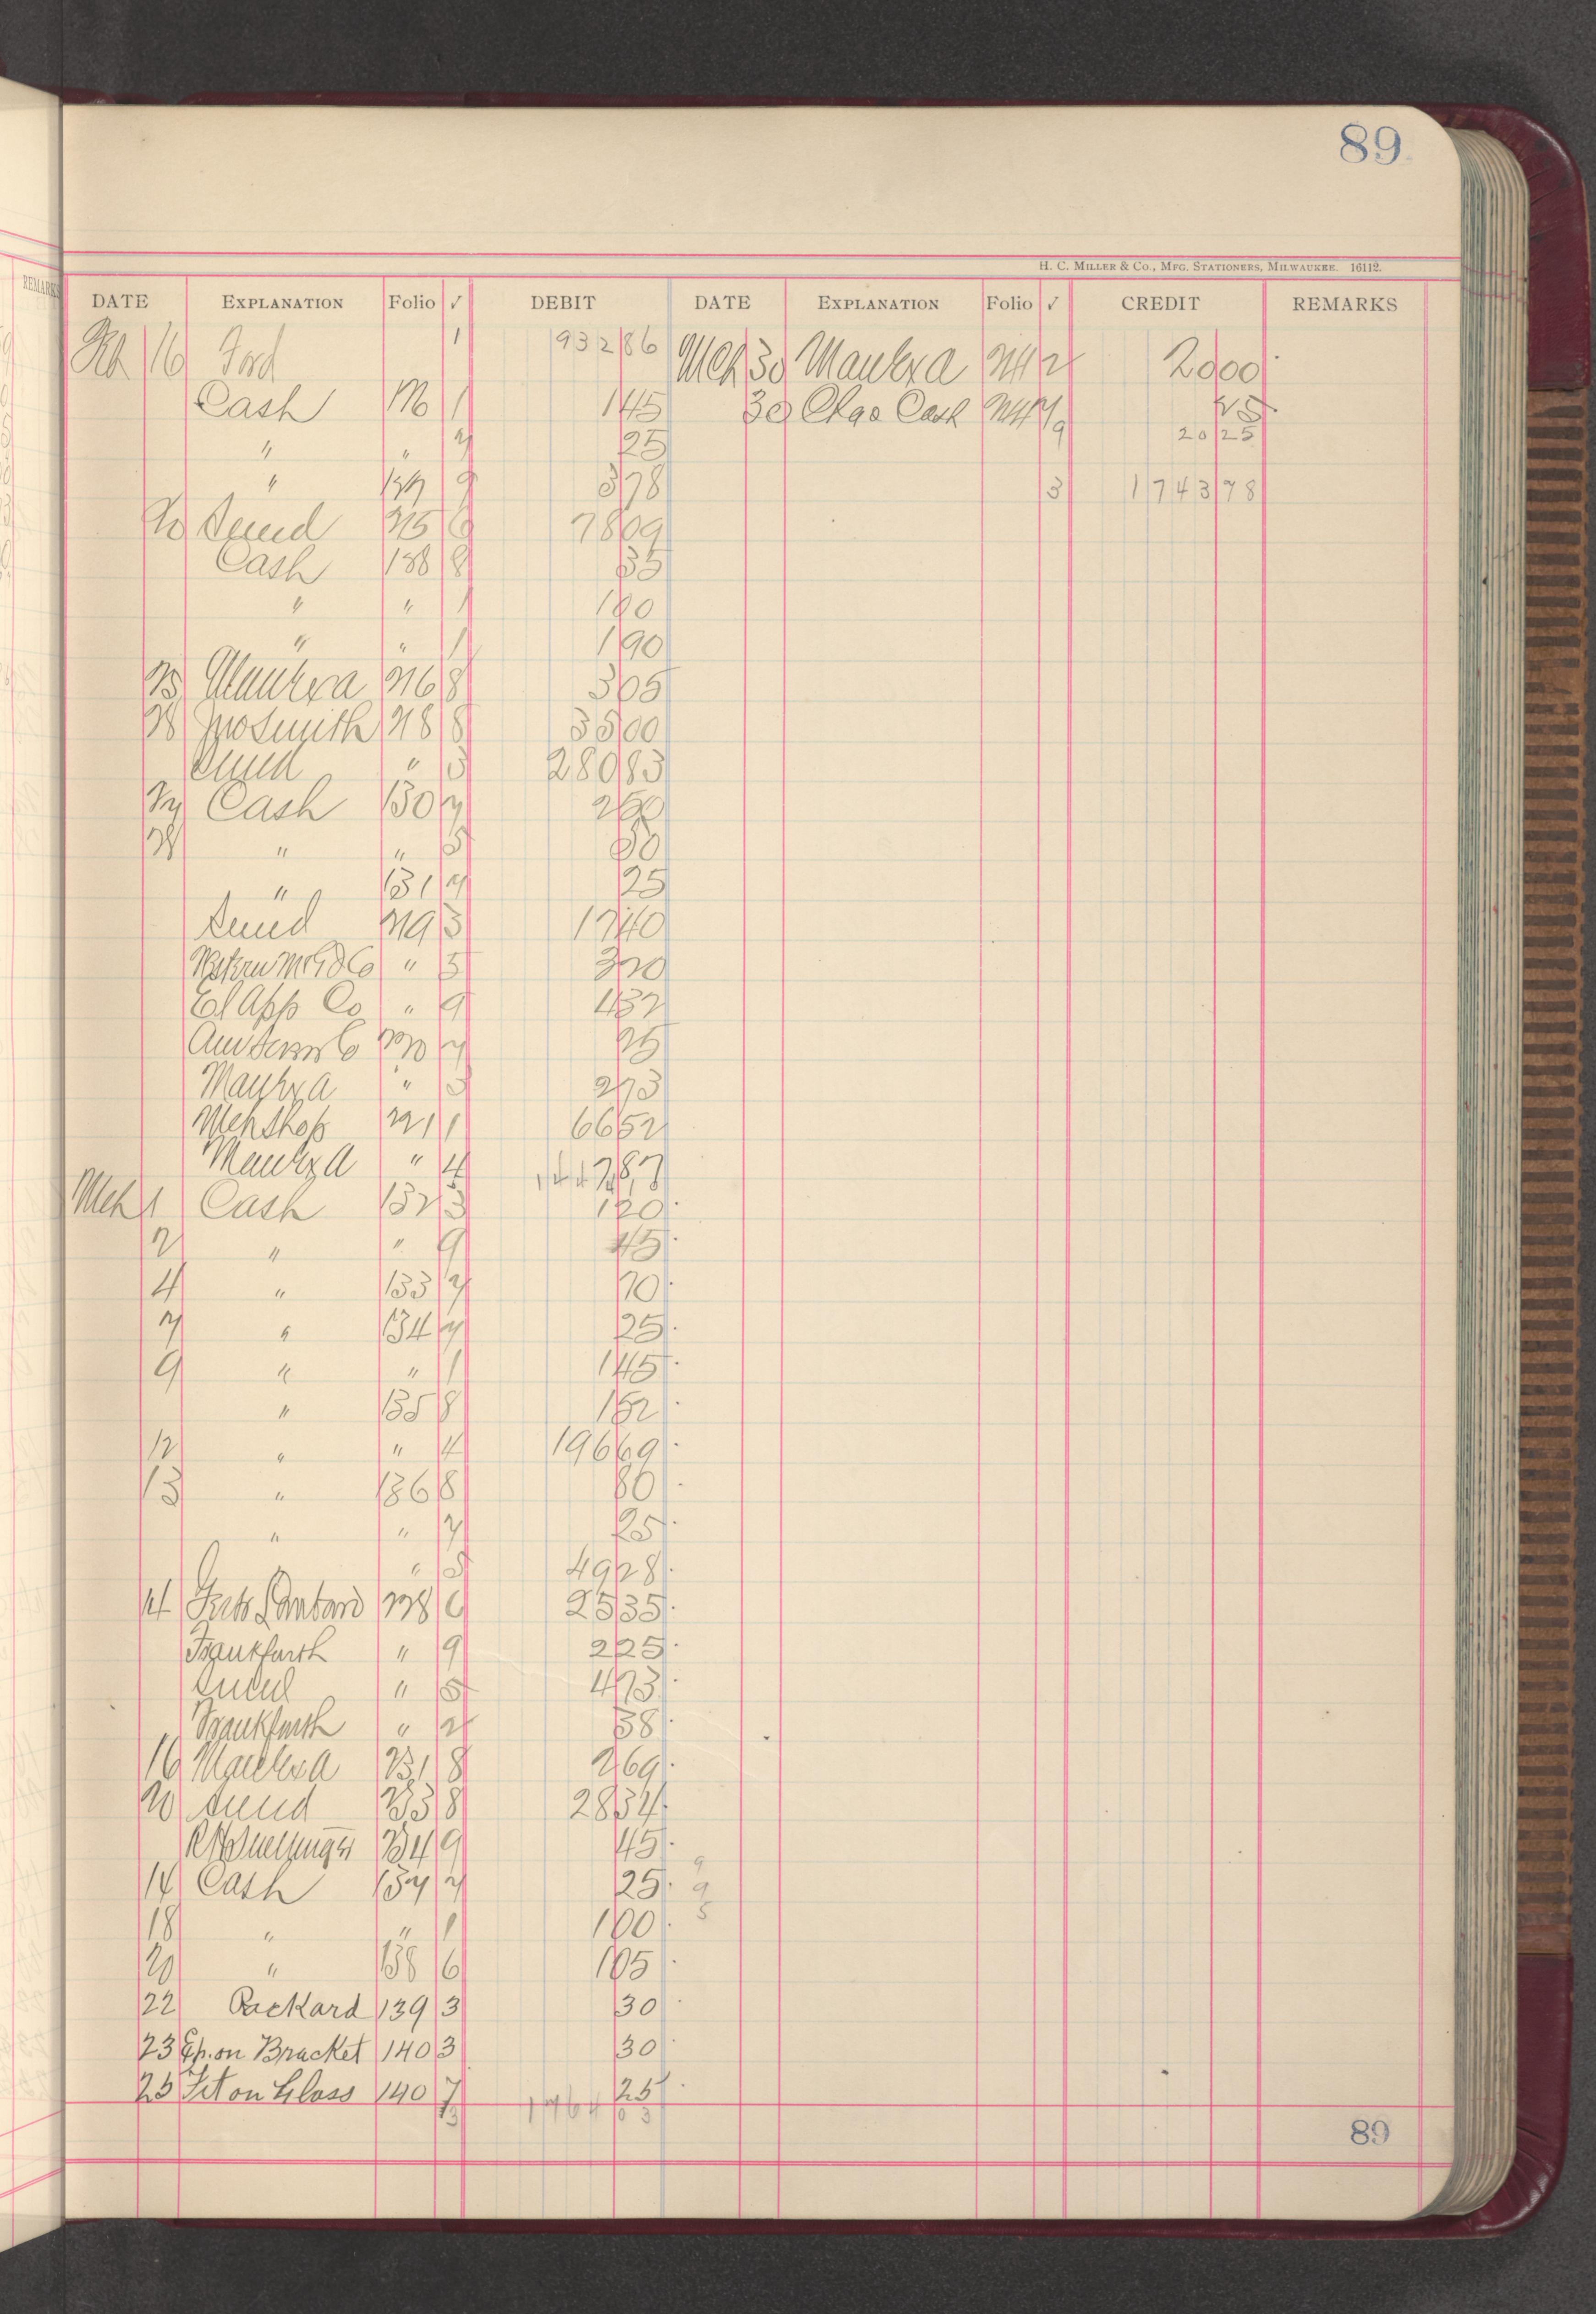 89
H. C. MILLER & CO., MFG. STATIONERS, MILWAUKEE. 16112.
REMARKS
DATE EXPLANATION Folio ✓ DEBIT DATE EXPLANATION Folio ✓ CREDIT REMARKS
16 Ford 1 932 86 Mch 30 2 20 00
Cash 1 1 45 30 Cash 25
" " 7 25 9 20 25
" 9 3 78 3 1743 78
20 Sund 215 6 78 09
Cash 188 8 35
" " 1 1 00
" " 1 1 90
25 216 8 3 05
28 Jno Smith 218 8 35 00
Sund " 3 280 83
27 Cash 130 7 2 50
28 " " 5 50
" 131 7 25
Sund 219 3 17 40
" 5 3 20
El App Co " 9 4 32
220 7 25
" 3 2 73
Mch Shop 221 1 66 52
" 4
Mch 1 Cash 132 3 1 20
2 " " 9 45
4 " 133 7 70
7 " 134 7 25
9 " " 1 1 45
" 135 8 1 52
12 " " 4 196 69
13 " 136 8 80
" " 7 25
" 5 49 28
14 228 6 25 35
Frankfurth " 9 2 25
Sund " 5 4 73
Frankfurth " 2 38
16 231 8 2 69
20 Sund 233 8 28 34
234 9 45
14 Cash 137 7 25 9
9
18 " " 1 1 00 5
20 " 138 6 1 05
22 Packard 139 3 30
23 Ep. on Bracket 140 3 30
25 Fit on Glass 140 7 25
13 1764 03
89